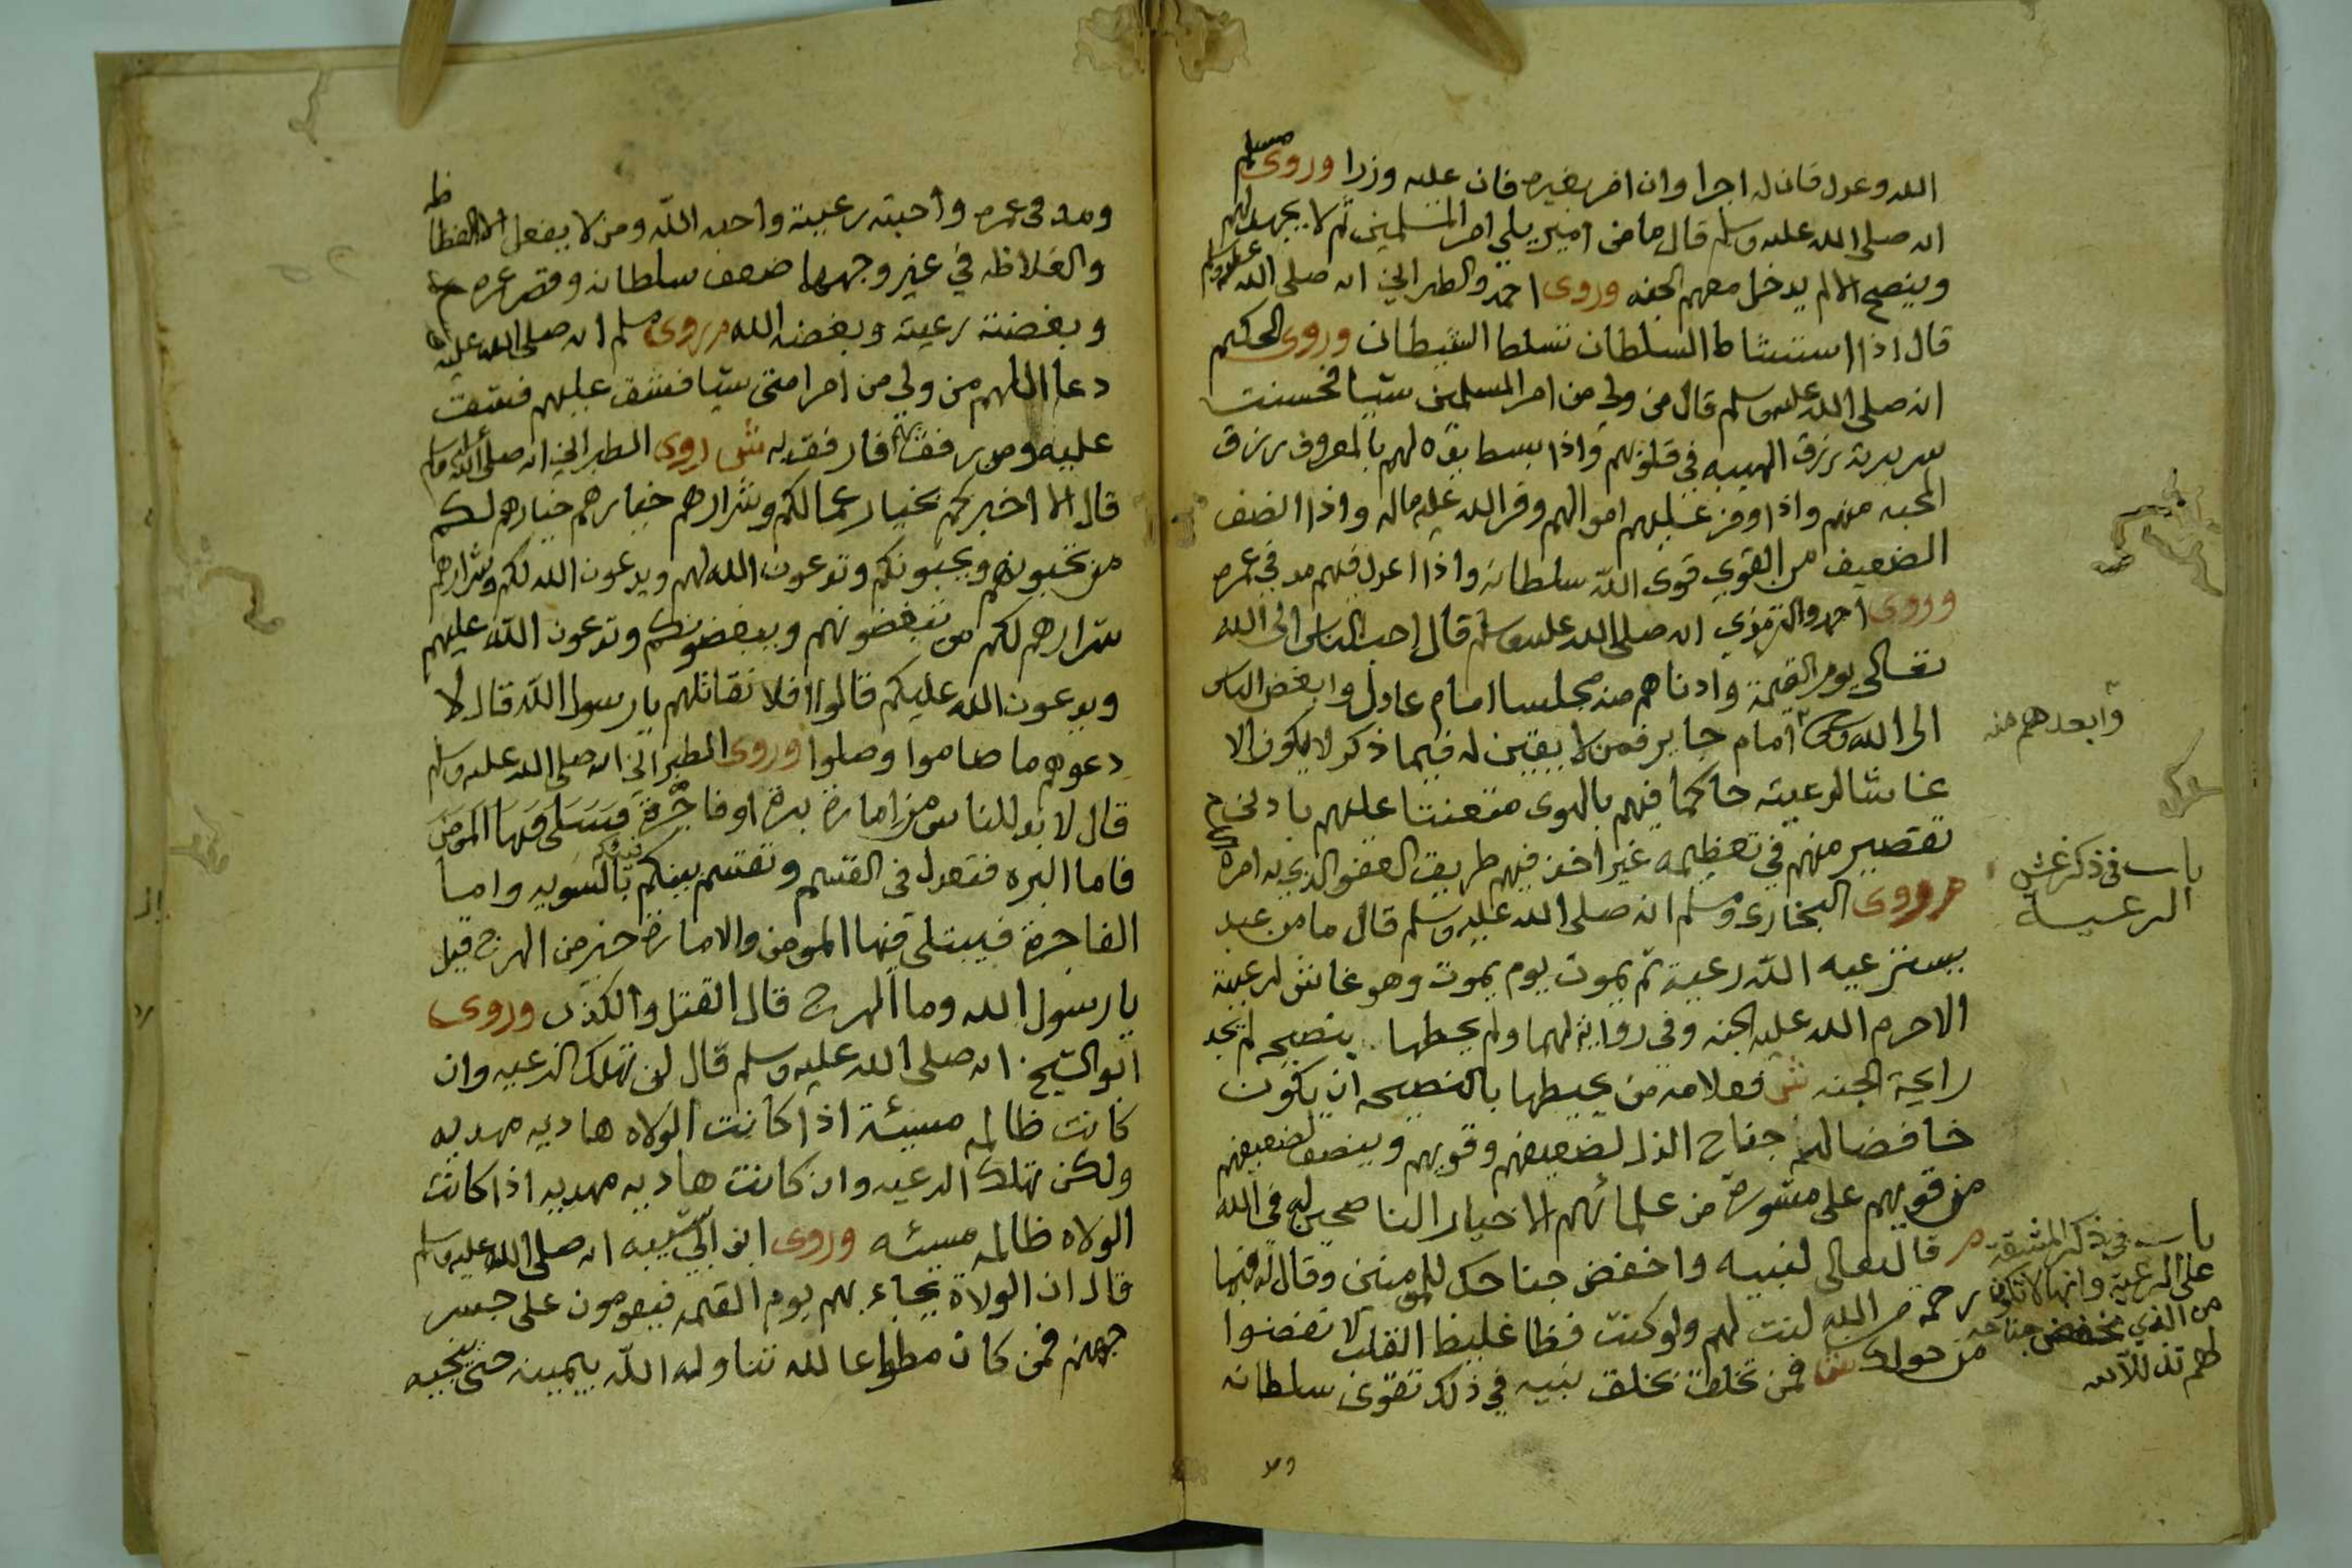 الله وعدل فان له اجرا وان امر بغيره فان عليه وزرا وروى مسلم
انه صلى الله عليه وسلم قال ما من امير يلي امر المسلمين ثم لا يجهد لهم
وينصح الا لم يدخل معهم الجنه وروى احمد والطبراني انه صلى الله عليه وسلم
قال اذا استشاط السلطان تسلط الشيطان وروى الحكيم
انه صلى الله عليه وسلم قال من ولي من امر المسلمين شيا فحسنت
سريرته رزق الهيبه في قلوبهم واذا بسط يده لهم بالمعروف رزق
المحبه منهم واذا وفر عليهم اموالهم وفر الله عليه ماله واذا انصف
الضعيف من القوي قوى الله سلطانه واذا اعدل فيهم مد في عمره
وروى احمد والترمذي انه صلى الله عليه وسلم قال احب الناس الى الله
تعالى يوم القيمة وادناهم منه مجلسا امام عادل وابغض الناس
الى الله امام جاير فمن لا يقين له فيما ذكر لا يكون الا
وابعدهم منه
غاشا لرعيته حاكما فيهم بالهوى متعنتا عليهم بادنى
تقصير منهم في تعظيمه غير اخذ فيهم طريق العفو الذي به امره
باب في ذكر غش
الرعية
م وروى البخارى ومسلم انه صلى الله عليه وسلم قال ما من عبد
يسترعيه الله رعية ثم يموت يوم يموت وهو غاش لرعيته
الا حرم الله عليه الجنه وفي رواية لهما ولم يحطها بنصيحه لم يجد
رايحة الجنه ش فعلامه من يحيطها بالنصيحه ان يكون
خافضا لهم جناح الذل لضعيفهم وقويهم وينصف لضعيفهم
من قويهم على مشورة من علمائهم الاخيار الناصحين له في الله
باب في ذكر المشقة
على الرعية وانها لا تكون
من الذي يخفض جناحه
لهم تذللا لله
م قال تعالى لنبيه واخفض جناحك للمومنين وقال له فبما
رحمة من الله لنت لهم ولو كنت فظا غليظ القلب لا نفضوا
من حولك ش فمن تخلق بخلق نبيه في ذلك تقوى سلطانه
ومد في عمره واحبته رعيته واحبه الله ومن لا يفعل الا الفظاظه
والغلاظه في غير وجهها ضعف سلطانه وقصر عمره
وبغضته رعيته وبغضه الله م روى مسلم انه صلى الله عليه
دعا اللهم من ولي من امر امتى شيا فشق عليهم فشق
عليه ومن رفق بهم فارفق به ش روى الطبراني انه صلى الله عليه وسلم
قال الا اخبركم بخيار عمالكم وشرارهم خيارهم خيارهم لكم
من تحبونهم ويحبونكم وتدعون الله لهم ويدعون الله لكم وشرارهم
شرارهم لكم من تبغضونهم ويبغضونكم وتدعون الله عليهم
ويدعون الله عليكم قالوا افلا نقاتلهم يا رسول الله قال لا
دعوهم ما صاموا وصلوا وروى الطبراني انه صلى الله عليه وسلم
قال لا بد للناس من امارة برة او فاجرة
فاما البره فتعدل في القسم وتقسم بينكم بالسويه واما
الفاجرة فيبتلى فيها المومن والامارة خير من الهرج قيل
يا رسول الله وما الهرج قال القتل والكذب وروى
ابو الشيخ انه صلى الله عليه وسلم قال لن تهلك الرعيه وان
كانت ظالمه مسيئة اذا كانت الولاه هاديه مهديه
ولكن تهلك الرعيه وان كانت هاديه مهديه اذا كانت
الولاه ظالمه مسيئه وروى ابن ابي شيبه انه صلى الله عليه وسلم
قال ان الولاة يجاء بهم يوم القيمه فيقومون على جسر
جهنم فمن كان مطواعا لله تناوله الله بيمينه حتى ينجيه